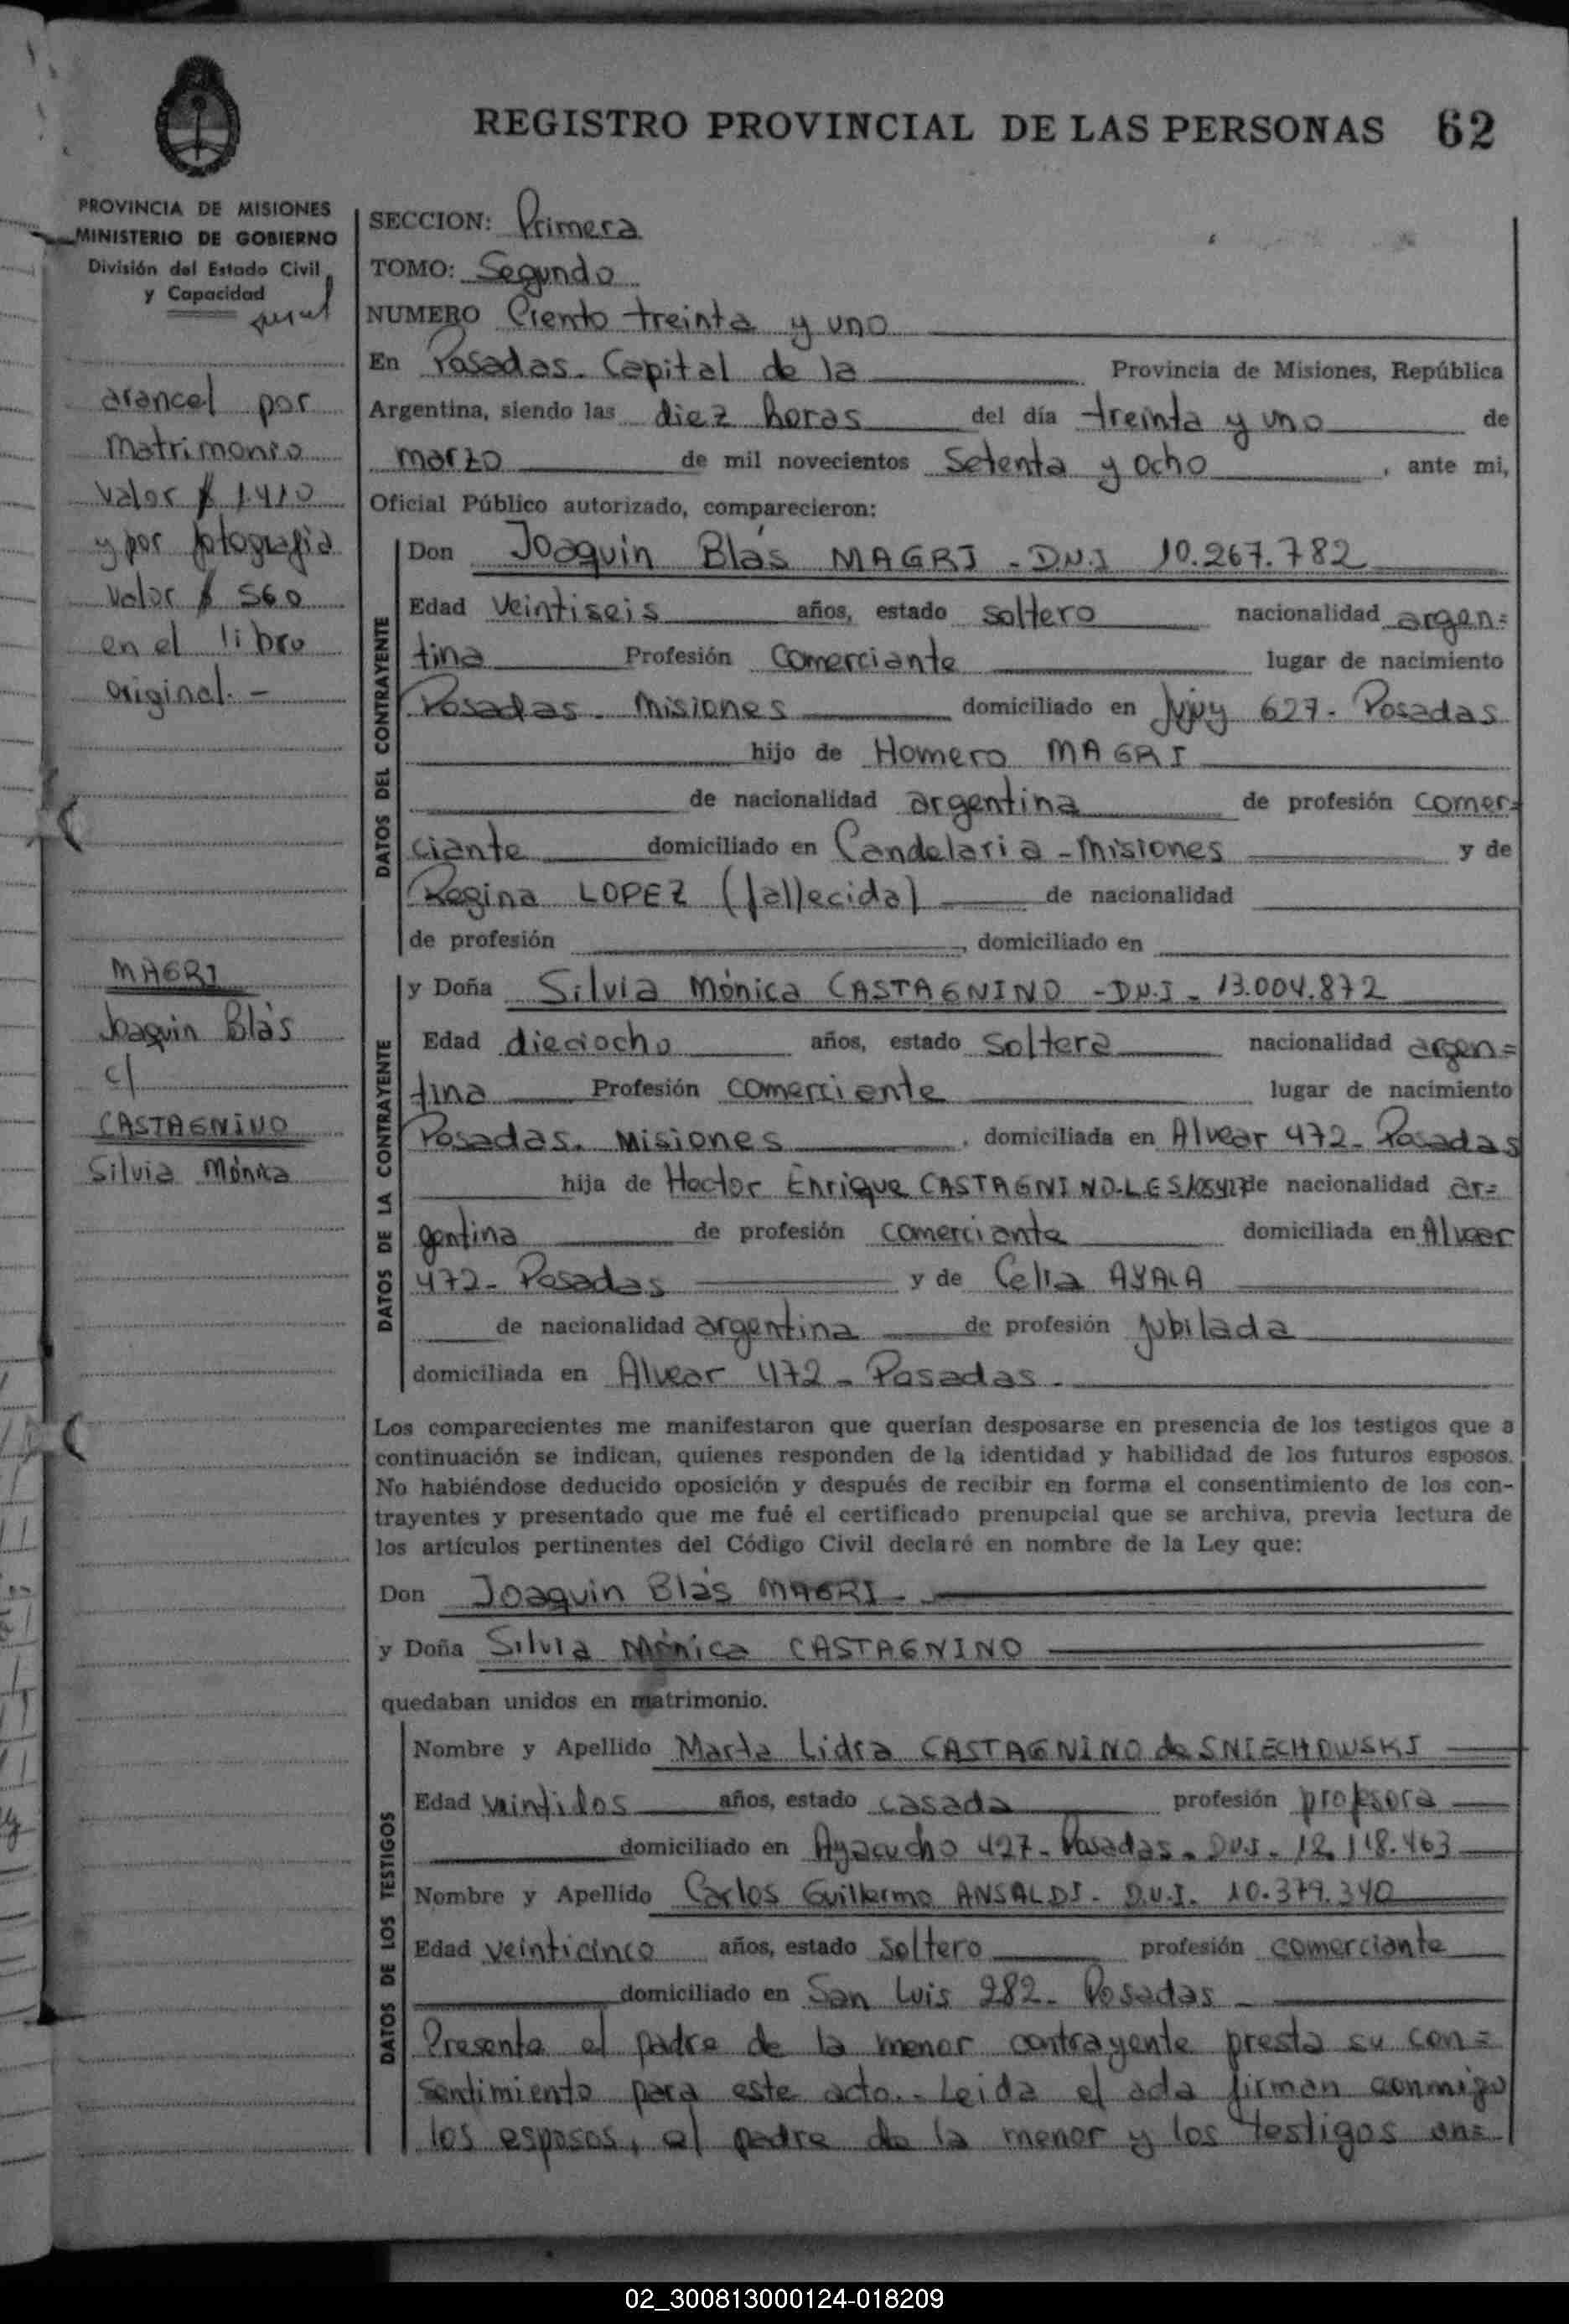 REGISTRO PROVINCIAL DE LAS PERSONAS 62
PROVINCIA DE MISIONES
MINISTERIO DE GOBIERNO
División del Estado Civil
y Capacidad
arancel por
matrimonio
valor $ 1.410
y por fotografia
valor $ 560
en el libro
original. -
MAGRI
Joaquin Blás
c/
CASTAGNINO
Silvia Mónica
SECCION: Primera
TOMO: Segundo
NUMERO Ciento treinta y uno
En Posadas. Capital de la Provincia de Misiones, República
Argentina, siendo las diez horas del día treinta y uno de
marzo de mil novecientos Setenta y ocho, ante mi,
Oficial Público autorizado, comparecieron:
DATOS DEL CONTRAYENTE
Don Joaquin Blás MAGRI - D.N.I 10.267.782
Edad veintiseis años, estado soltero nacionalidad argen=
tina Profesión Comerciante lugar de nacimiento
Posadas. Misiones domiciliado en Jujuy 627- Posadas
hijo de Homero MAGRI
de nacionalidad argentina de profesión comer=
ciante domiciliado en Candelaria - Misiones y de
Regina LOPEZ (fallecida) de nacionalidad
de profesión , domiciliado en
DATOS DE LA CONTRAYENTE
y Doña Silvia Mónica CASTAGNINO - D.N.I - 13.004.872
Edad dieciocho años, estado soltera nacionalidad argen=
tina Profesión comerciente lugar de nacimiento
Posadas. Misiones , domiciliada en Alvear 472- Posadas
hija de Hector Enrique CASTAGNINO-L.E de nacionalidad ar=
gentina de profesión comerciante domiciliada en Alvear
472- Posadas y de Celia AYALA
de nacionalidad argentina de profesión jubilada
domiciliada en Alvear 472 - Posadas.
Los comparecientes me manifestaron que querían desposarse en presencia de los testigos que a
continuación se indican, quienes responden de la identidad y habilidad de los futuros esposos.
No habiéndose deducido oposición y después de recibir en forma el consentimiento de los con-
trayentes y presentado que me fué el certificado prenupcial que se archiva, previa lectura de
los artículos pertinentes del Código Civil declaré en nombre de la Ley que:
Don Joaquin Blás MAGRI
y Doña Silvia Mónica CASTAGNINO
quedaban unidos en matrimonio.
DATOS DE LOS TESTIGOS
Nombre y Apellido Marta Lidia CASTAGNINO de SNIECHOWSKI
Edad veintidos años, estado casada profesión profesora
domiciliado en Ayacucho 427- Posadas. D.N.I- 12.118.463
Nombre y Apellido Carlos Guillermo ANSALDI- D.N.I. 10.379.340
Edad veinticinco años, estado soltero profesión comerciante
domiciliado en San Luis 282- Posadas
Presente el padre de la menor contrayente presta su con=
sentimiento para este acto.- Leida el acta firman conmigo
los esposos, el padre de la menor y los testigos an=
02_300813000124-018209